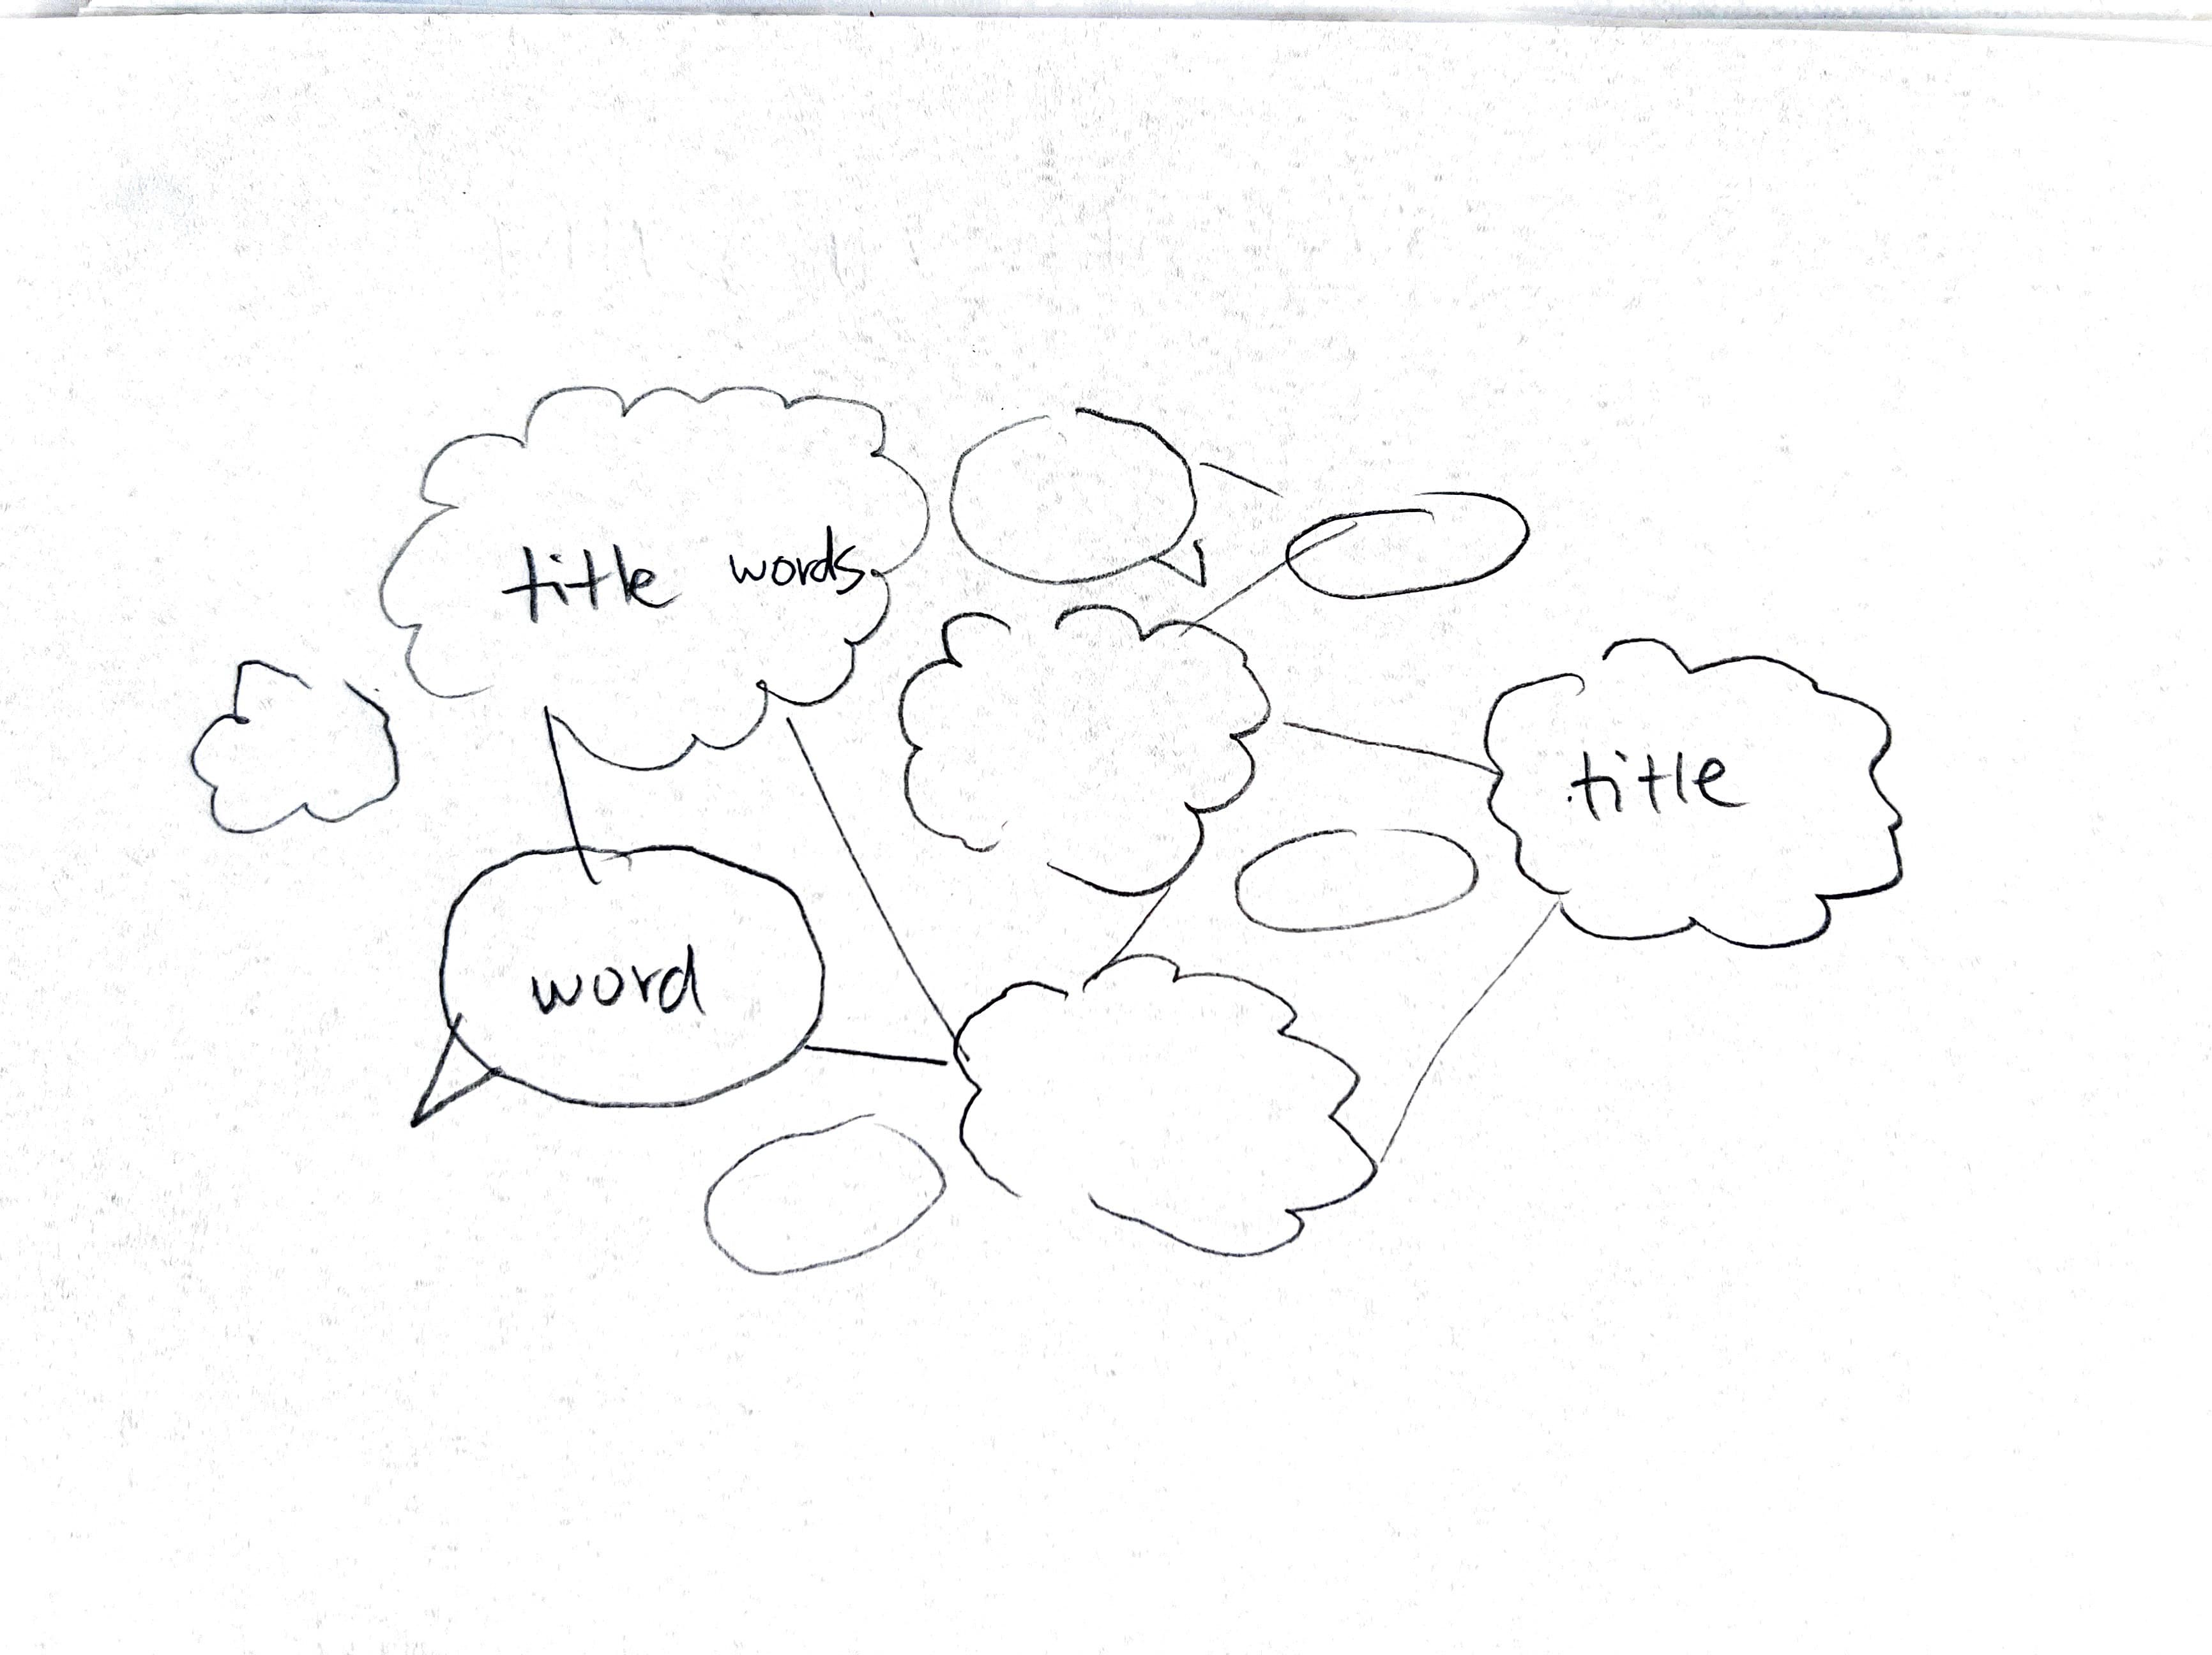 title words
title
word